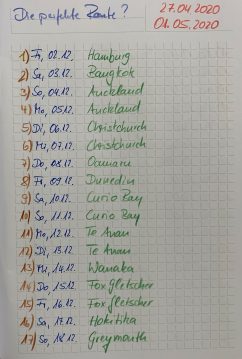 Die perfekte Route?
27.04.2020
01.05.2020
1) Fr, 02.12. Hamburg
2) Sa, 03.12. Bangkok
3) So, 04.12. Auckland
4) Mo, 05.12. Auckland
5) Di, 06.12. Christchurch
6) Mi, 07.12. Christchurch
7) Do, 08.12. Oamaru
8) Fr, 09.12. Dunedin
9) Sa, 10.12. Curio Bay
10) So, 11.12. Curio Bay
11) Mo, 12.12. Te Anau
12) Di, 13.12. Te Anau
13) Mi, 14.12. Wanaka
14) Do, 15.12. Fox gletscher
15) Fr, 16.12. Fox gletscher
16) Sa, 17.12. Hokitika
17) So, 18.12. Greymouth